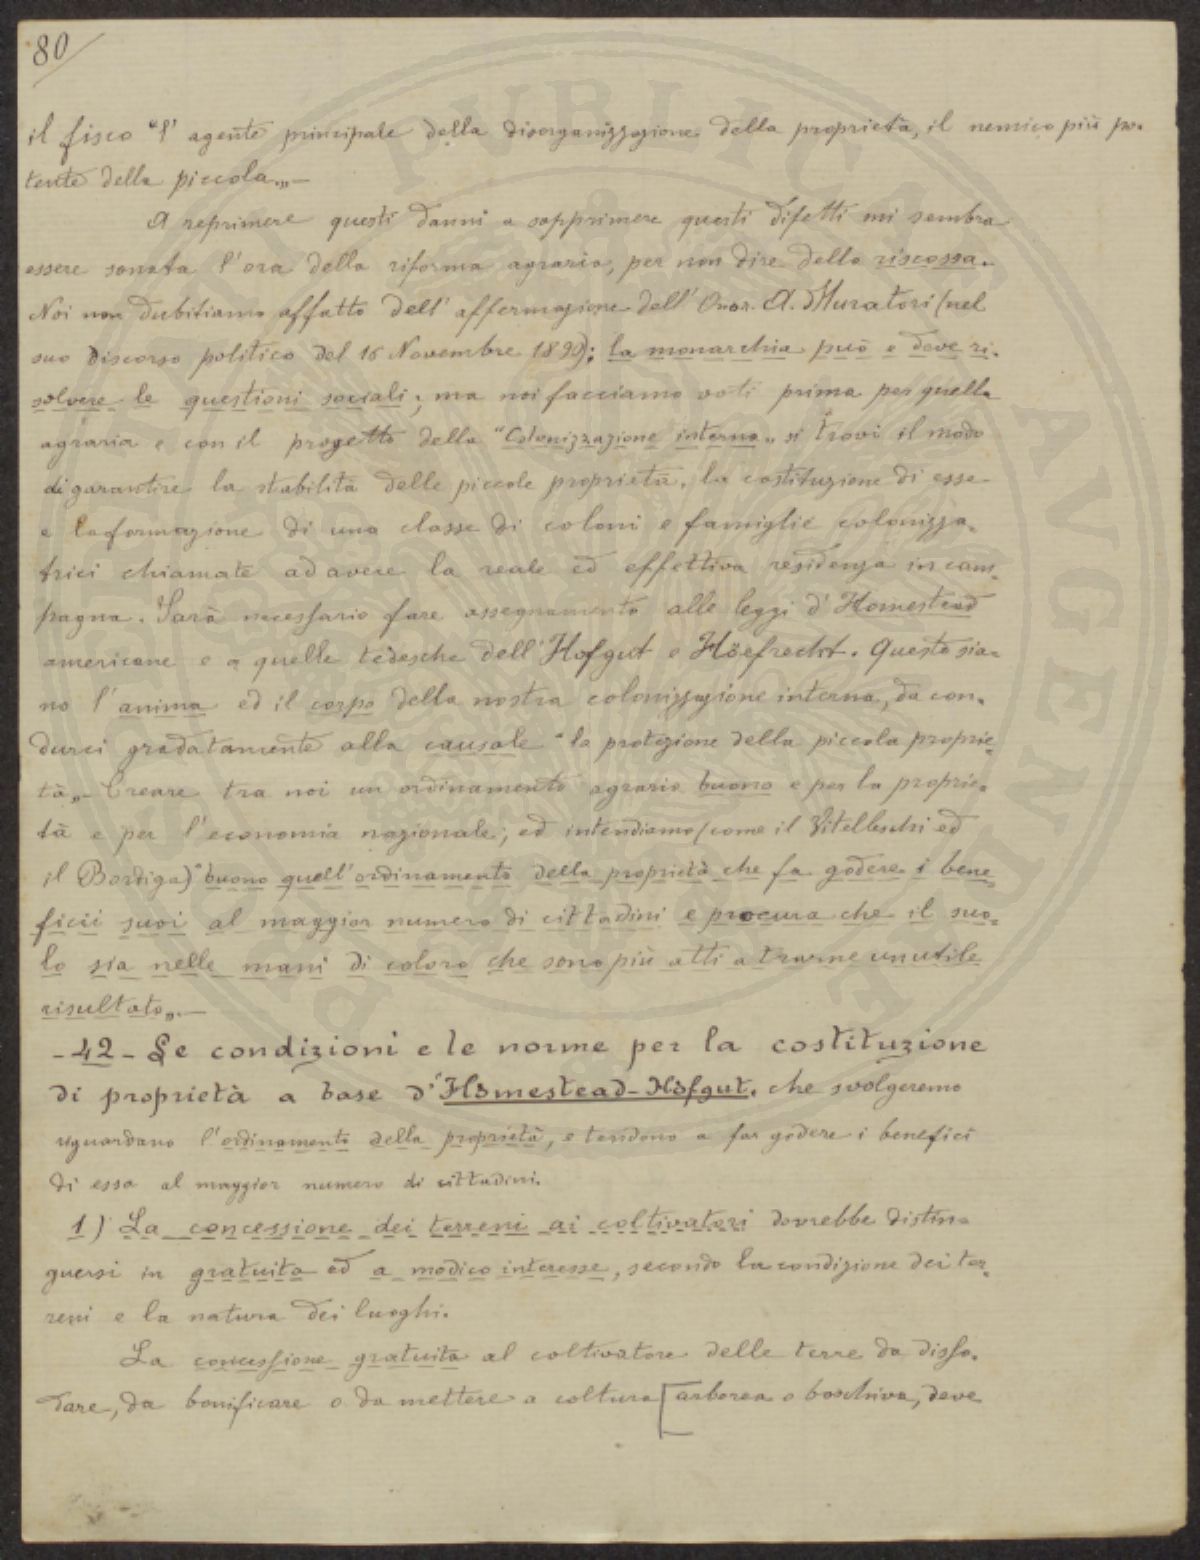 80
il fisco "l'agente principale della disorganizzazione della proprietà, il nemico più po-
tente della piccola„.—
A reprimere questi danni a sopprimere questi difetti mi sembra
essere sonata l'ora della riforma agraria, per non dire della riscossa.
Noi non dubitiamo affatto dell'affermazione dell'Onor. A. Muratori (nel
suo discorso politico del 16 Novembre 1890); la monarchia può e deve ri-
solvere le questioni sociali; ma noi facciamo voti prima per quella
agraria e con il progetto della "Colonizzazione interna„ si trovi il modo
di garantire la stabilità delle piccole proprietà, la costituzione di esse
e la formazione di una classe di coloni e famiglie colonizza-
trici chiamate ad avere la reale ed effettiva residenza in cam-
pagna. Sarà necessario fare assegnamento alle leggi d'Homestead
americane e a quelle tedesche dell'Hofgut e Höefrecht. Queste sia-
no l'anima ed il corpo della nostra colonizzazione interna, da con-
durci gradatamente alla causale "la protezione della piccola proprie-
tà„— Creare tra noi un ordinamento agrario buono e per la proprie-
tà e per l'economia nazionale; ed intendiamo (come il Vitelleschi ed
il Bordiga) "buono quell'ordinamento della proprietà che fa godere i bene-
ficii suoi al maggior numero di cittadini e procura che il suo-
lo sia nelle mani di coloro che sono più atti a trarne un utile
risultato„.—
- 42 - Le condizioni e le norme per la costituzione
di proprietà a base d'Homestead-Höfgut, che svolgeremo
riguardano l'ordinamento della proprietà, e tendono a far godere i benefici
di essa al maggior numero di cittadini.
1) La concessione dei terreni ai coltivatori dovrebbe distin-
guersi in gratuita ed a modico interesse, secondo la condizione dei ter-
reni e la natura dei luoghi.
La concessione gratuita al coltivatore delle terre da disso-
dare, da bonificare o da mettere a coltura [arborea o boschiva, deve